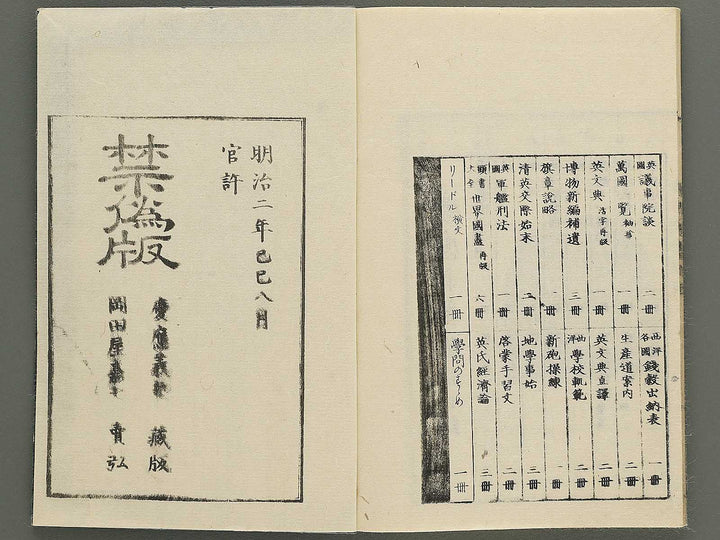 英國 議事院談 二冊
萬國 覧 袖珍 一冊
英文典 活字再版 一冊
博物新編補遺 三冊
旗章說略 一冊
清英交際始末 二冊
英國 軍艦刑法 一冊
頭書大全 世界國盡 再版 六冊
リードル 一冊
西洋各國 錢穀出納表 一冊
生產道案内 二冊
英文典直譯 二冊
西洋 學校軌範 二冊
新砲操練 一冊
地學事始 三冊
啓蒙手習文 二冊
英氏經濟論 三冊
學問のすゝめ 一冊
明治二年己巳八月
官許
禁偽版
慶應義塾 藏版
岡田屋嘉七 賣弘